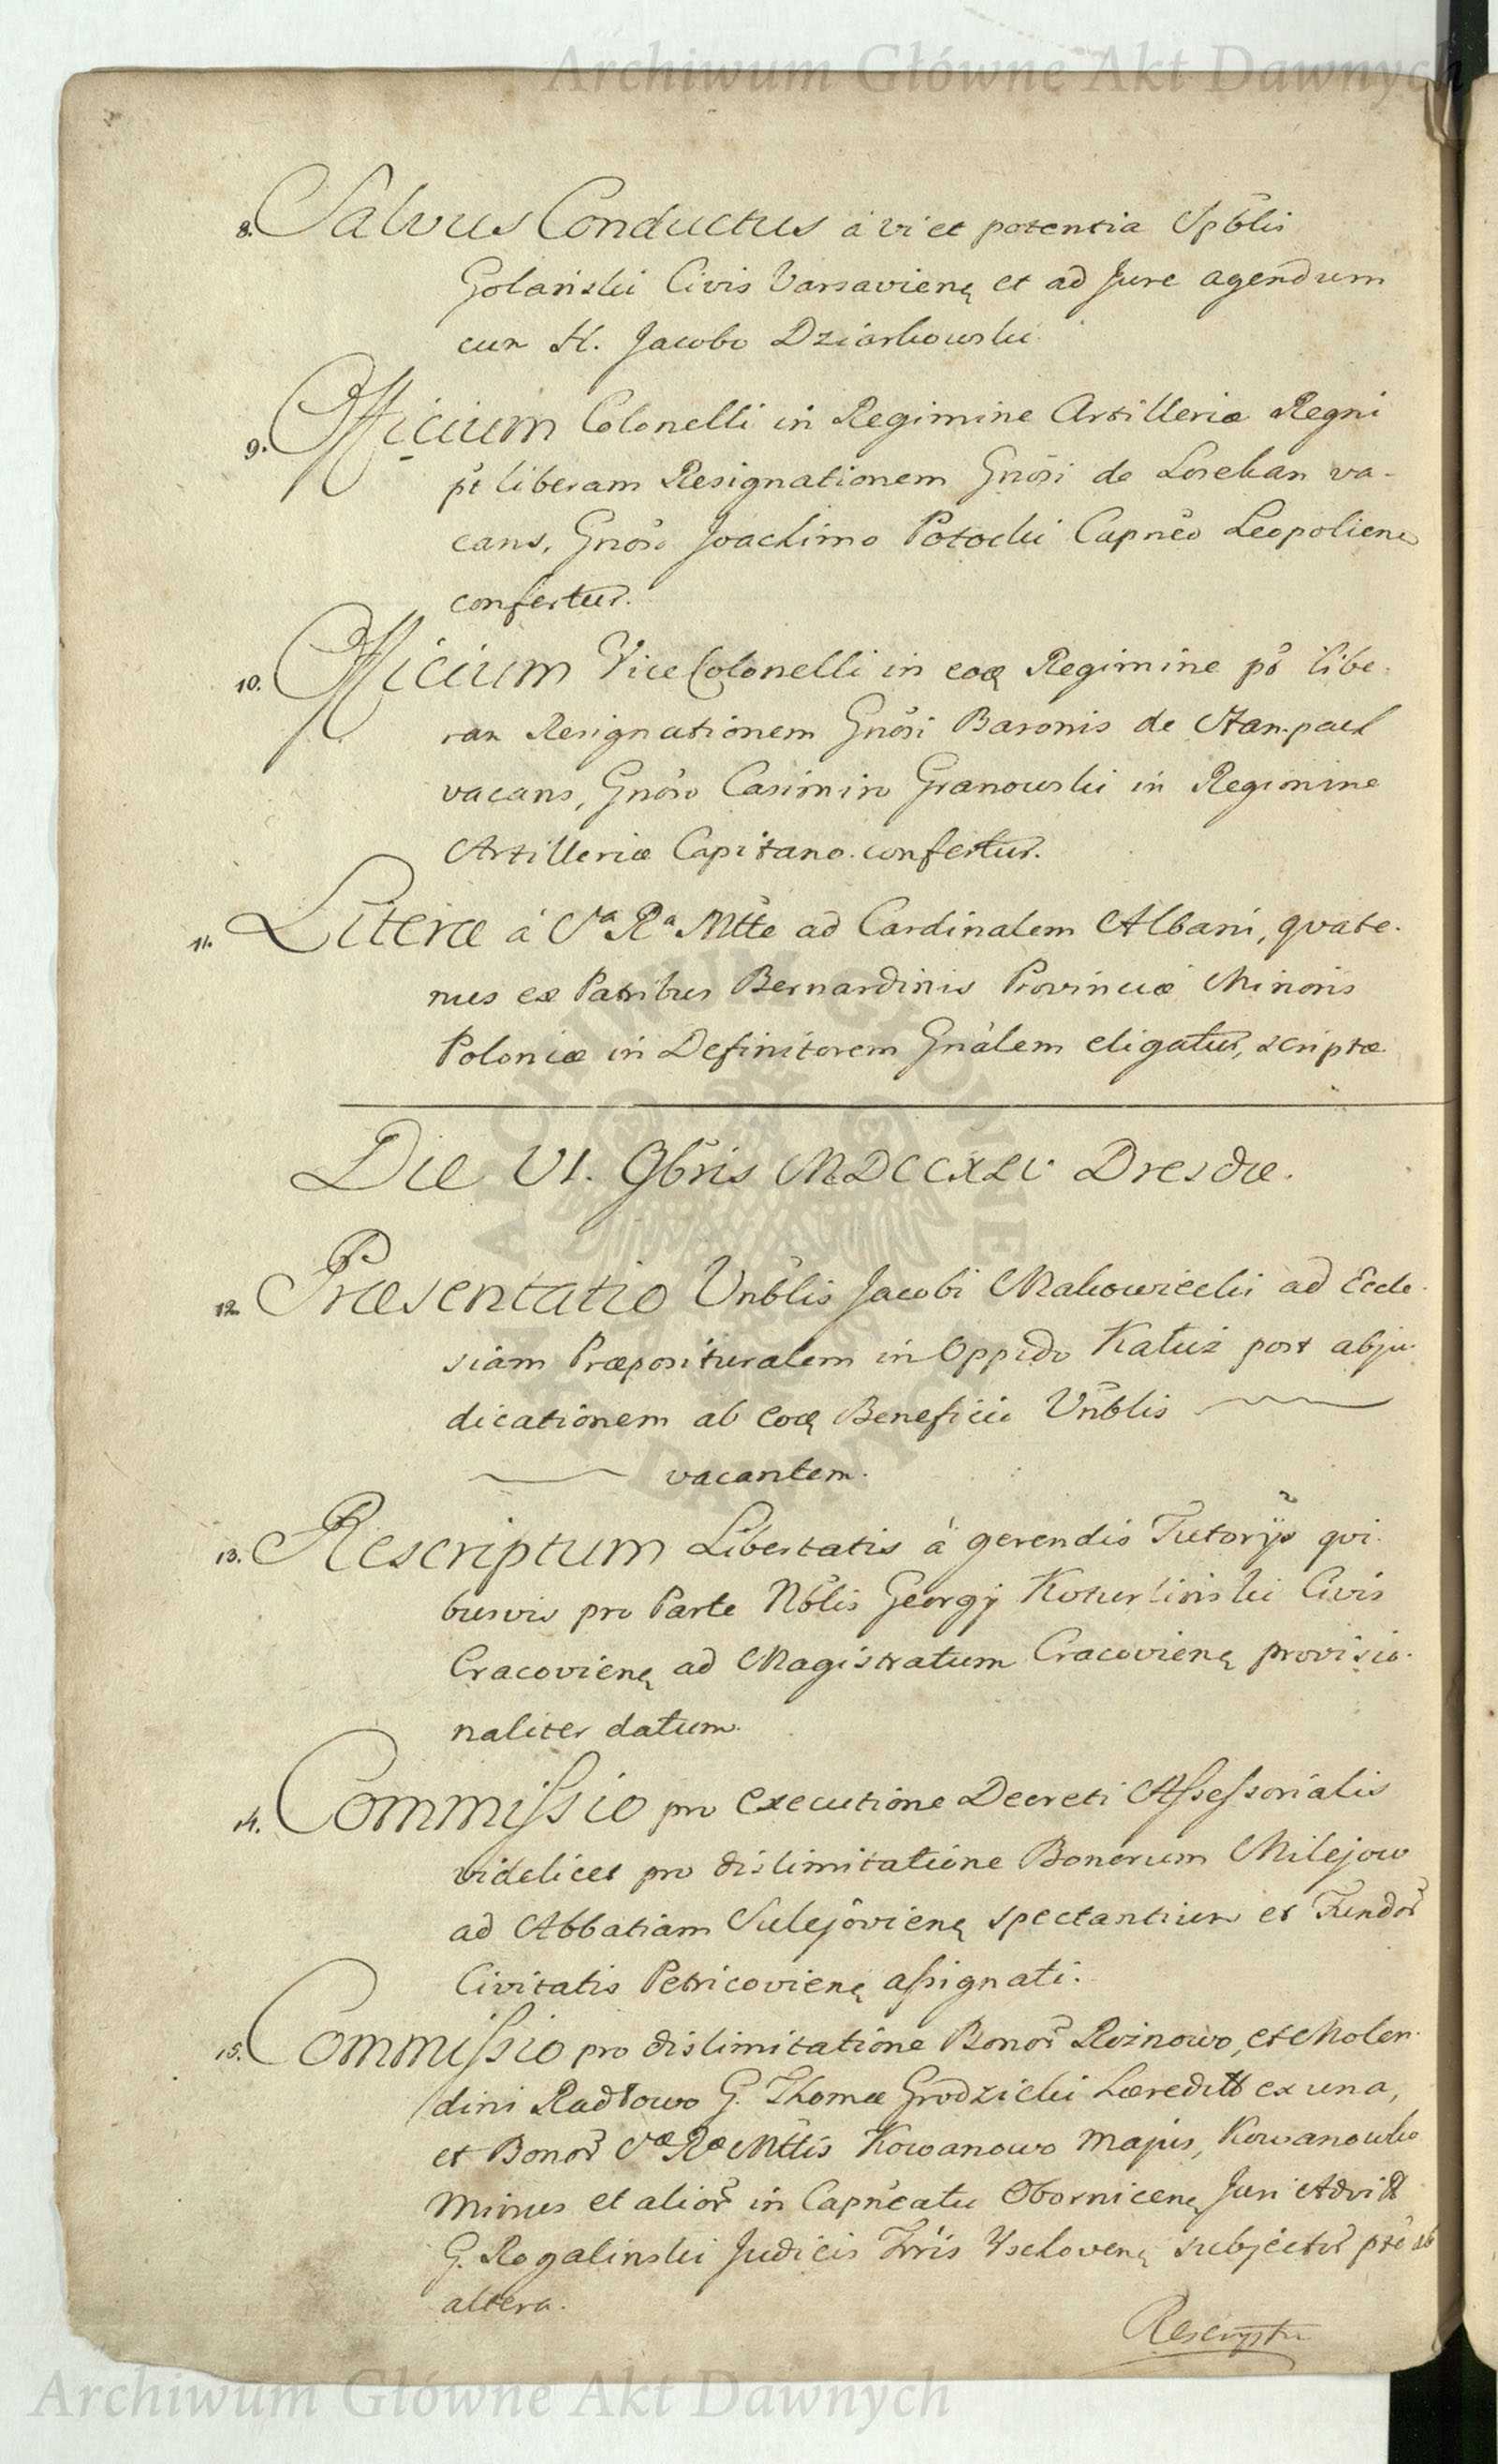 Archiwum Główne Akt Dawnych
8. Salvus Conductus a vi et potentia Spblis
Golański Civis Varsavienę et ad Jure agendum
cum N. Jacobo Dziarkowski.
9. Officium Colonelli in Regimine Artilleriæ Regni
pt liberam Resignationem Gnosi de Loseban va-
cans, Gnoso Joachimo Potocki Capneo Leopoliens
confertur.
10. Officium Vice Colonelli in eoq Regimine pt libe-
ram Resignationem Gnosi Baronis de Stampach
vacans, Gnoso Casimiro Granowski in Regimine
Artilleriæ Capitano confertur.
11. Literæ á Sa Ra Mtte ad Cardinalem Albani, quate-
nus ex Patribus Bernardinis Provinciæ Minoris
Poloniæ in Definitorem Gnalem eligatur, scriptæ
Die VI. 9bris MDCCXLV Dresdæ.
12. Præsentatio Vnblis Jacobi Makowiecki ad Eccle-
siam Præposituralem in Oppido Katuż post abju-
dicationem ab eoq Beneficio Vnblis
vacantem.
13. Rescriptum Libertatis á gerendis Tutorijs qvi-
busvis pro Parte Nblis Georgij Koturliński Civis
Cracovienę ad Magistratum Cracovienę provisio-
naliter datum.
14. Commissio pro Executione Decreti Assessorialis
videlicet pro dislimitatione Bonorum Milejow
ad Abbatiam Sulejovienę spectantium et Fundor
Civitatis Petricovienę assignati.
15. Commissio pro dislimitatione Bonor Rożnowo, et Molen-
dini Radłowo G. Thomæ Grodzicki hæredit ex una,
et Bonor Sæ Ræ Mttis Kowanowo majus, Kowanowko
minus et alior in Capneatu Obornicenę Juri Advit
G. Rogalinski Judicis Trris Vschovenę subjector pte ab
altera.
Rescriptu
Archiwum Główne Akt Dawnych